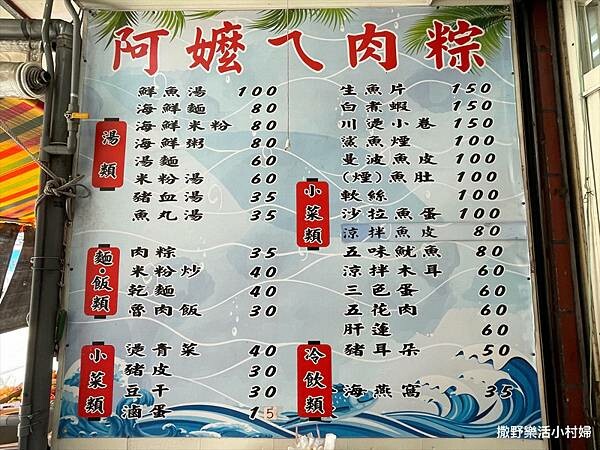 阿嬤ㄟ肉粽
湯類
鮮魚湯 100
海鮮麵 80
海鮮米粉 80
海鮮粥 80
湯麵 60
米粉湯 60
豬血湯 35
魚丸湯 35
麵·飯類
肉粽 35
米粉炒 40
乾麵 40
魯肉飯 30
小菜類
燙青菜 40
豬皮 30
豆干 30
滷蛋 15
小菜類
生魚片 150
白煮蝦 150
川燙小卷 150
鯊魚煙 100
曼波魚皮 100
(煙)魚肚 100
軟絲 100
沙拉魚蛋 100
涼拌魚皮 80
五味魷魚 80
涼拌木耳 60
三色蛋 60
五花肉 60
肝蓮 60
豬耳朵 50
冷飲類
海燕窩 35
撒野樂活小村婦